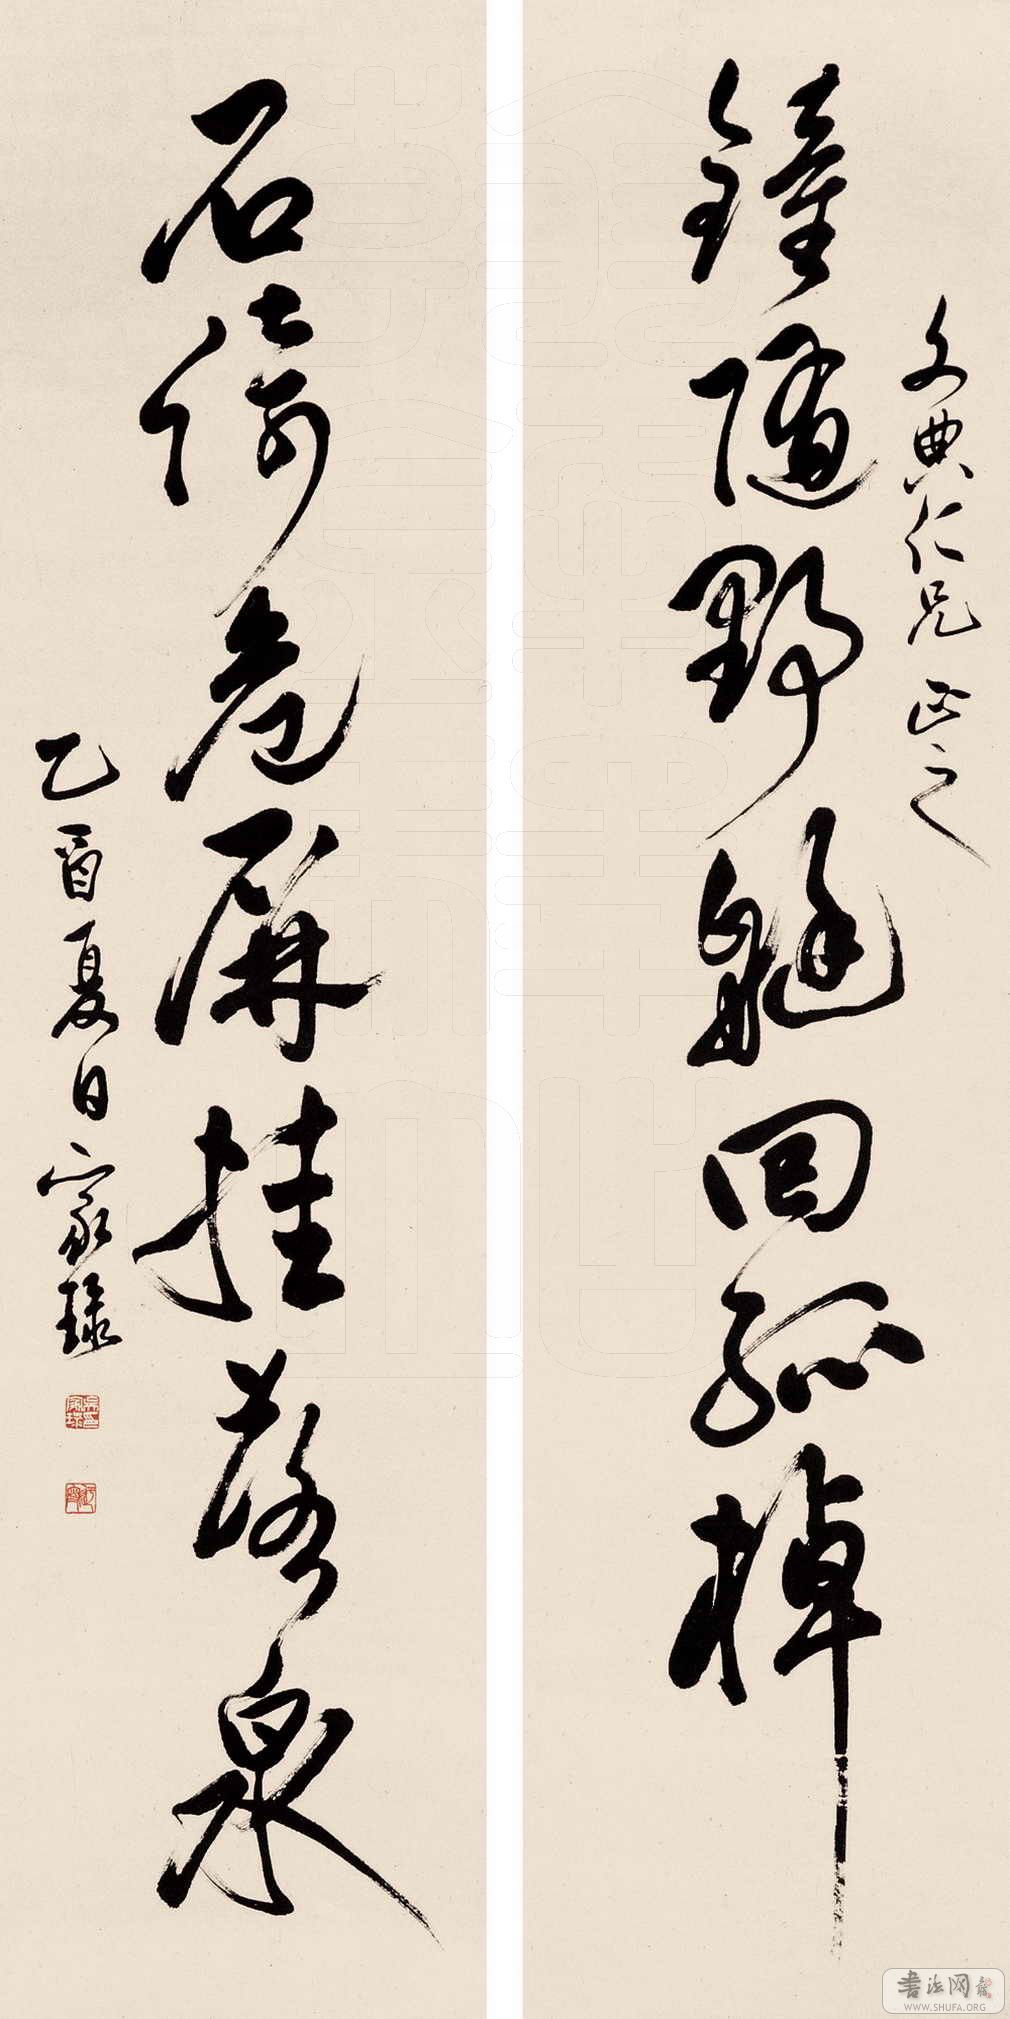 文典仁兄正之
鐘隨野艇回孤棹
石倚危屏挂落泉
乙酉夏日家琭
書法网
WWW.SHUFA.ORG